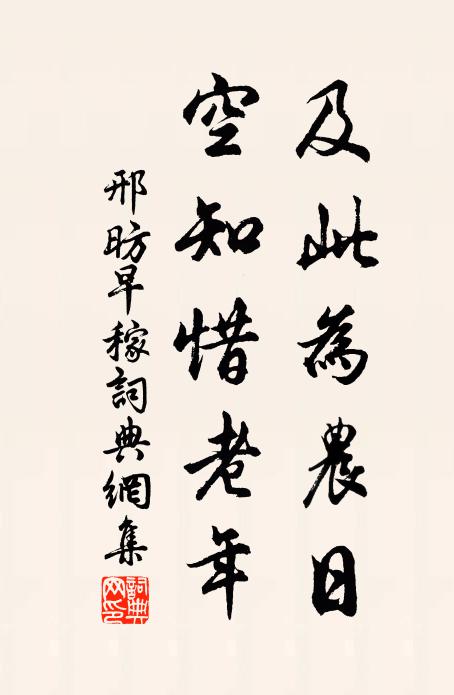 及此為農日
空知惜老年
邢昉早稼詞典網集
詞典网印